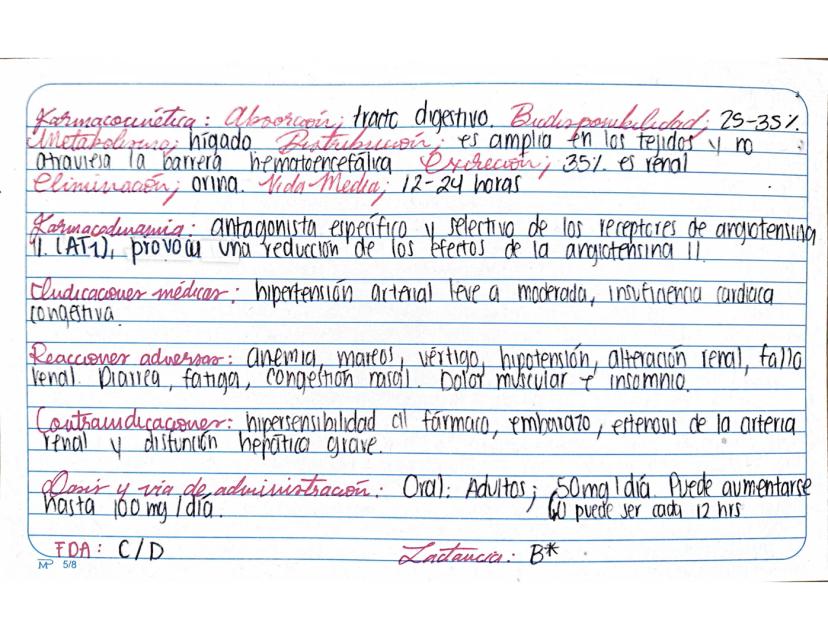 Farmacocinética: Absorción; tracto digestivo. Biodisponibilidad; 25-35%.
Metabolismo; hígado Distribución; es amplia en los tejidos y no
atraviesa la barrera hematoencefálica Excreción; 35% es renal
Eliminación; orina. Vida Media; 12-24 horas
Farmacodinamia: antagonista específico y selectivo de los receptores de angiotensina
II. (AT1), provoca una reducción de los efectos de la angiotensina II.
Indicaciones médicas: hipertensión arterial leve a moderada, insuficiencia cardiaca
congestiva.
Reacciones adversas: anemia, mareos, vértigo, hipotensión, alteración renal, fallo
renal. Diarrea, fatiga, congestión nasal. Dolor muscular e insomnio.
Contraindicaciones: hipersensibilidad al fármaco, embarazo, estenosis de la arteria
renal y disfunción hepática grave.
Dosis y vía de administración: Oral: Adultos; 50mg/día Puede aumentarse
hasta 100mg/día. ó puede ser cada 12 hrs
FDA: C/D Lactancia: B*
MP 5/8